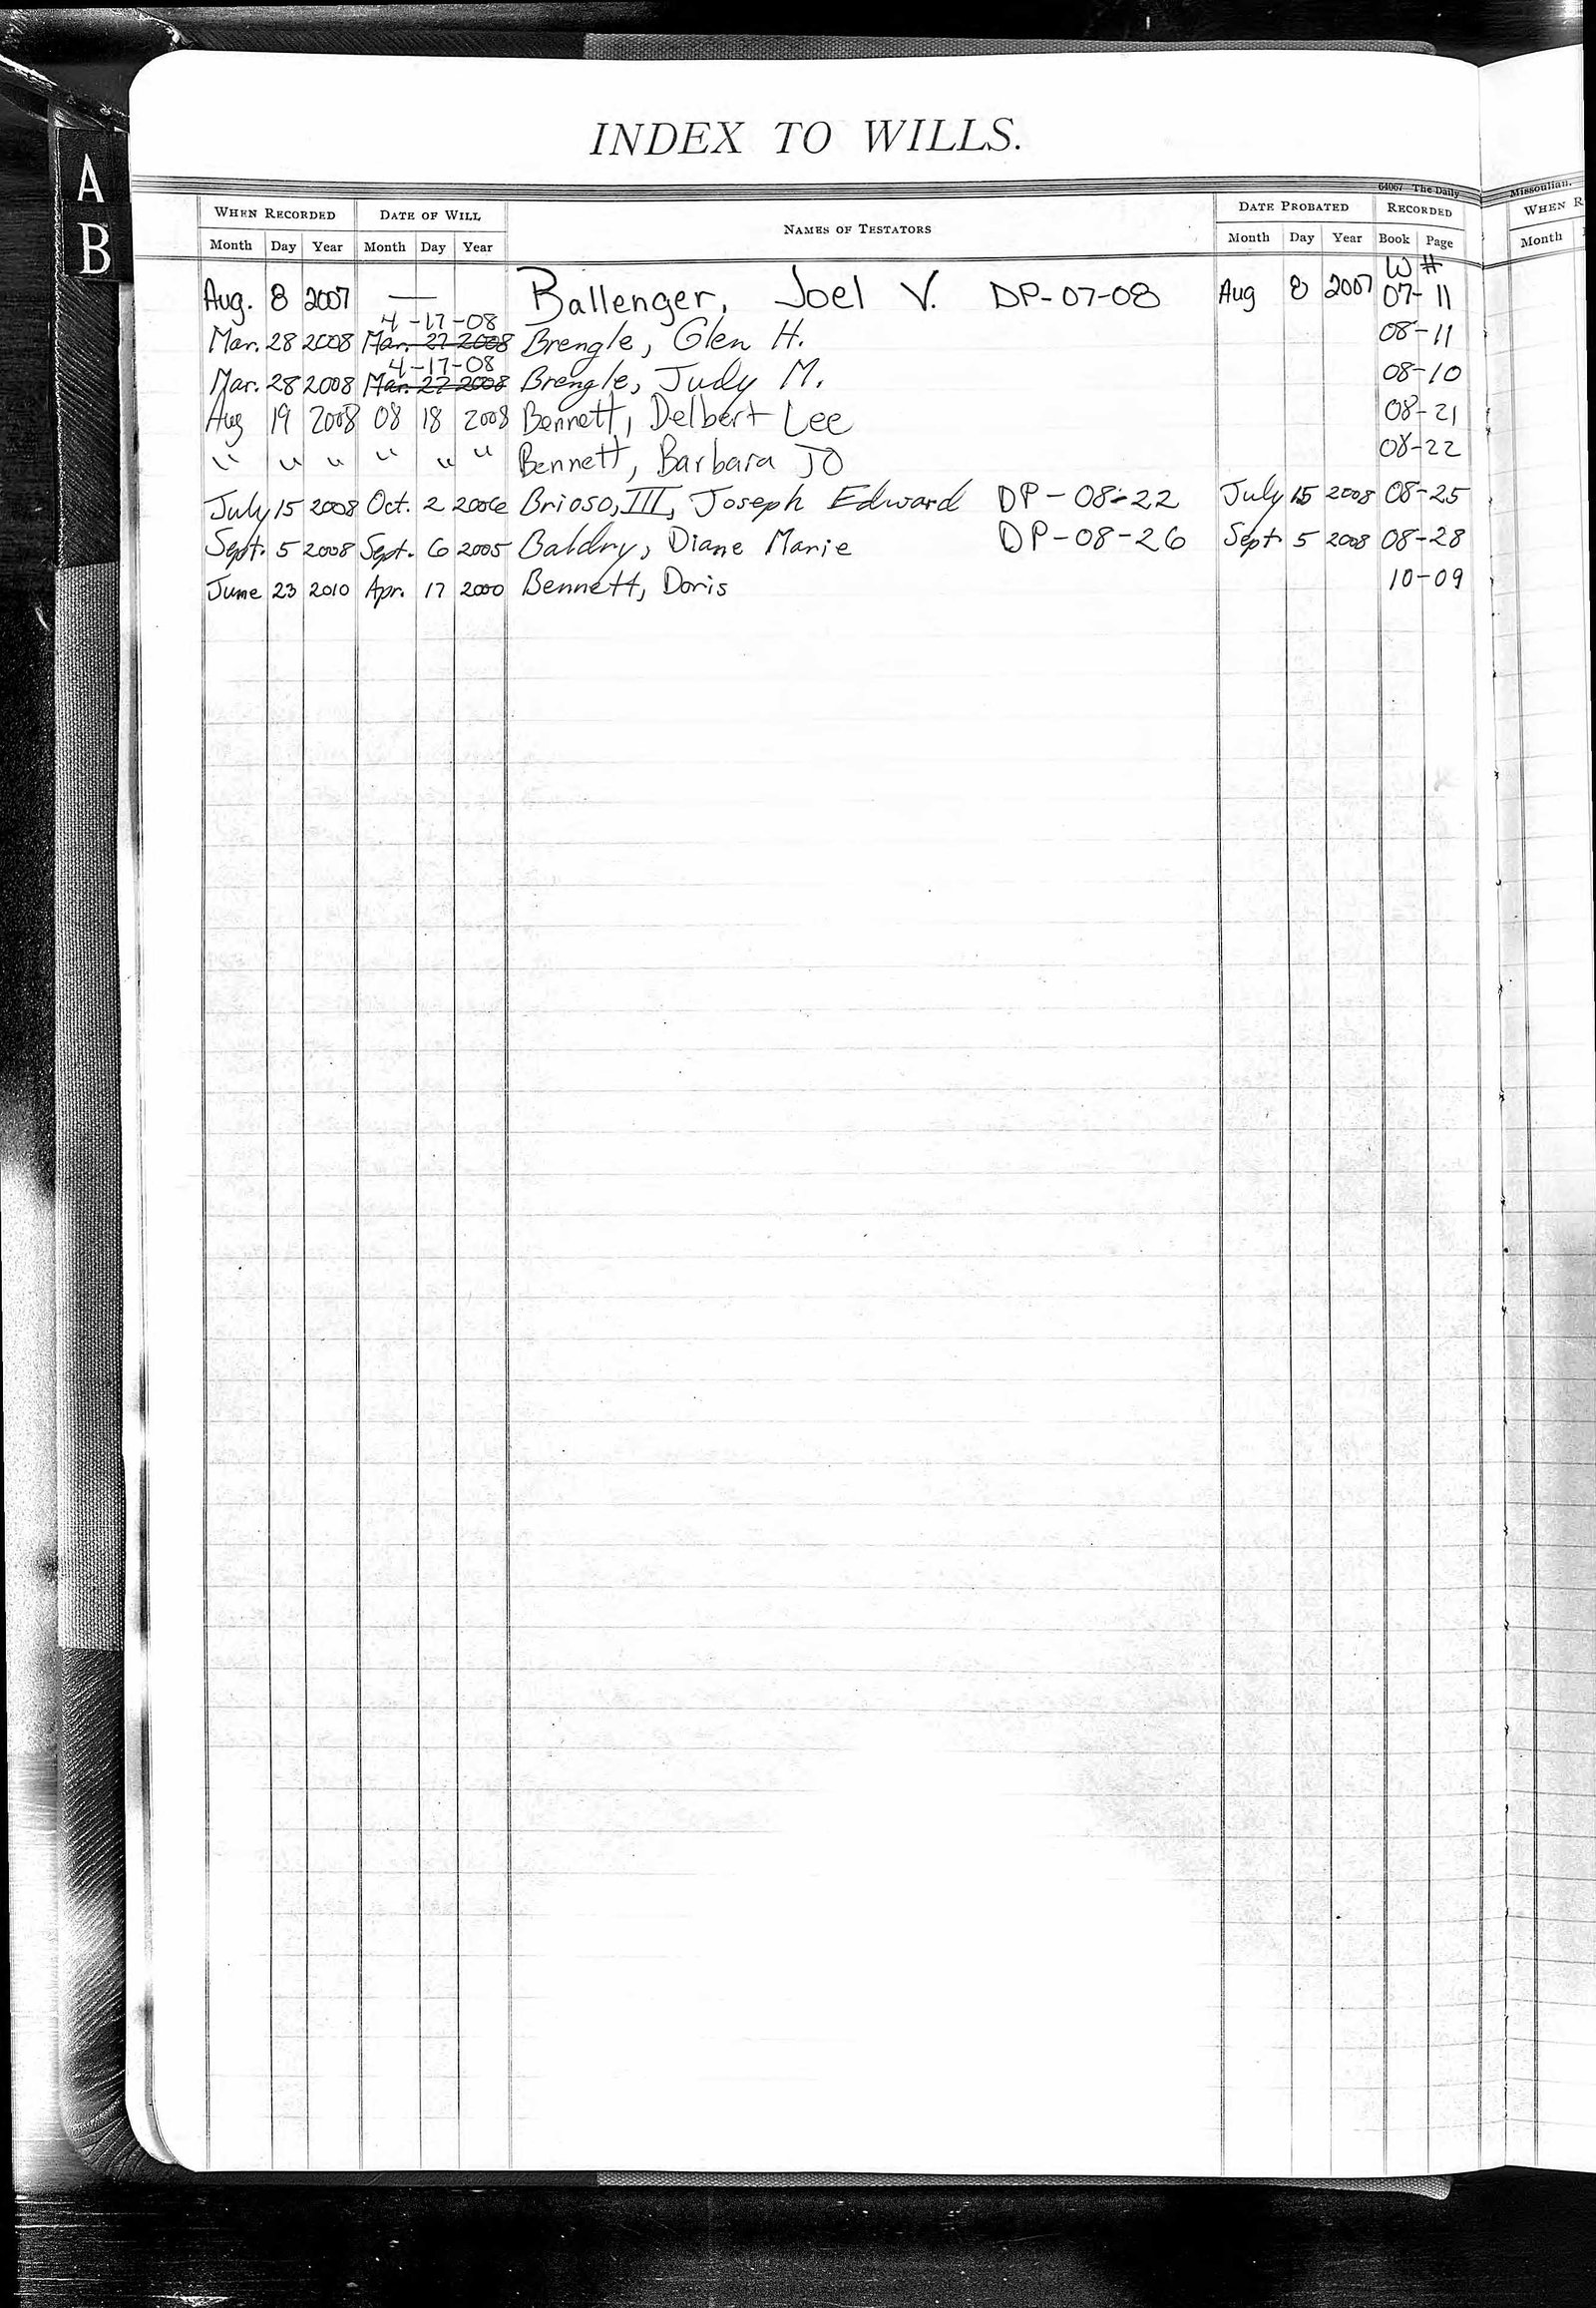 A
B
INDEX TO WILLS.
64067 The Daily Missoulian.
WHEN RECORDED DATE OF WILL NAMES OF TESTATORS DATE PROBATED RECORDED
Month Day Year Month Day Year Month Day Year Book Page
W #
Aug. 8 2007 — Ballenger, Joel V. DP-07-08 Aug 8 2007 07-11
4-17-08
Mar. 28 2008 Mar. 27 2008 Brengle, Glen H. 08-11
4-17-08
Mar. 28 2008 Mar. 27 2008 Brengle, Judy M. 08-10
Aug 19 2008 08 18 2008 Bennett, Delbert Lee 08-21
" " " " " " Bennett, Barbara JO 08-22
July 15 2008 Oct. 2 2006 Brioso, III, Joseph Edward DP-08-22 July 15 2008 08-25
Sept. 5 2008 Sept. 6 2005 Baldry, Diane Marie DP-08-26 Sept. 5 2008 08-28
June 23 2010 Apr. 17 2000 Bennett, Doris 10-09
WHEN R
Month